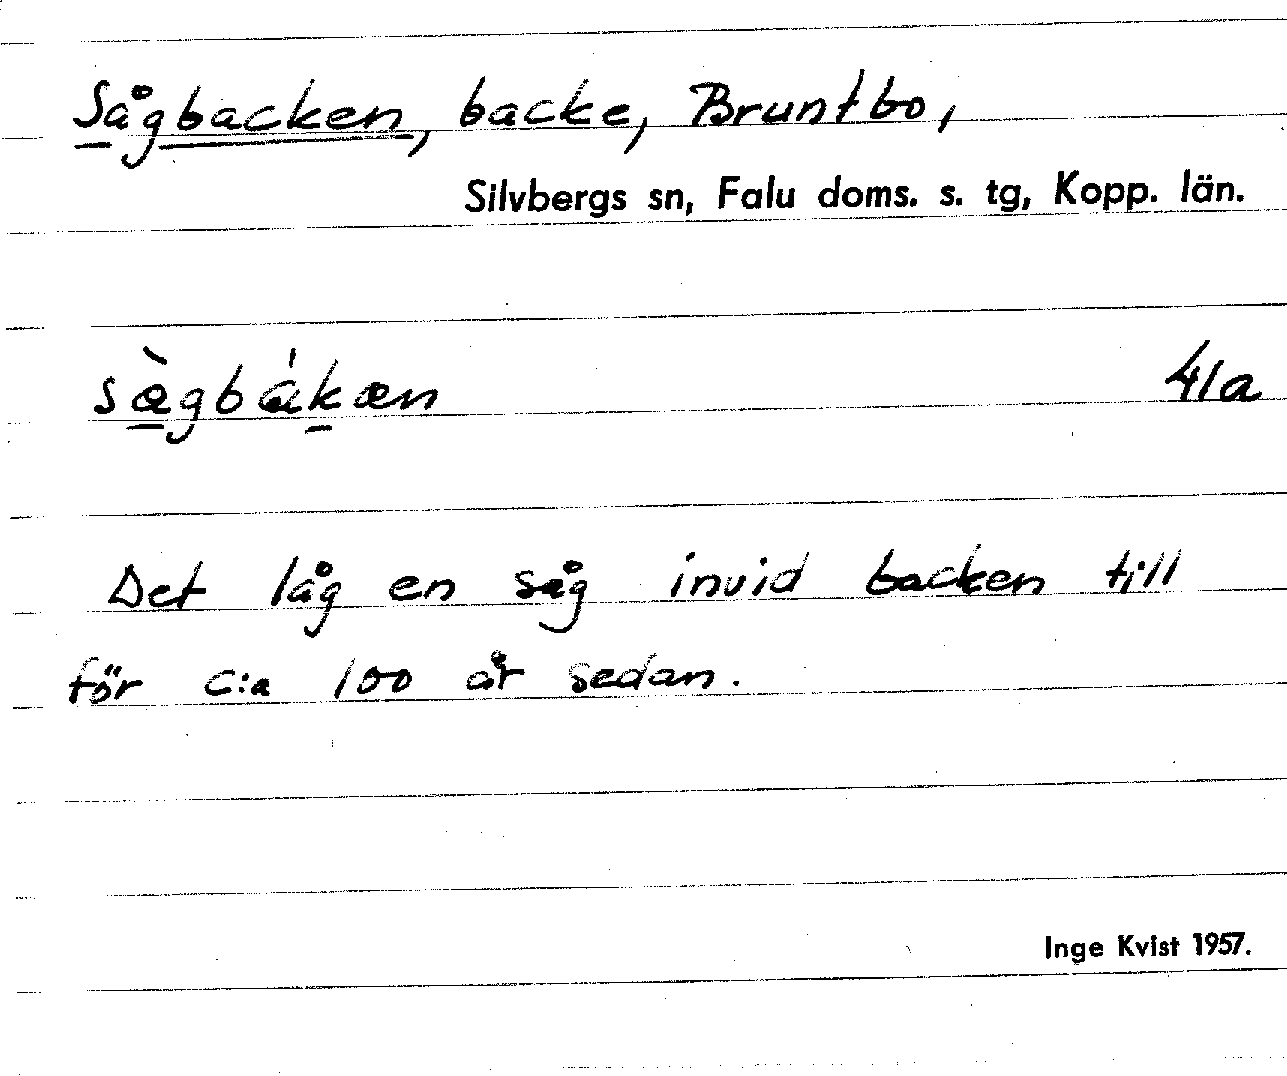 Sågbacken, backe, Bruntbo,
Silvbergs sn, Falu doms. s. tg, Kopp. län.
sæ̀gbákæn 41a
Det låg en såg invid backen till
för c:a 100 år sedan.
Inge Kvist 1957.